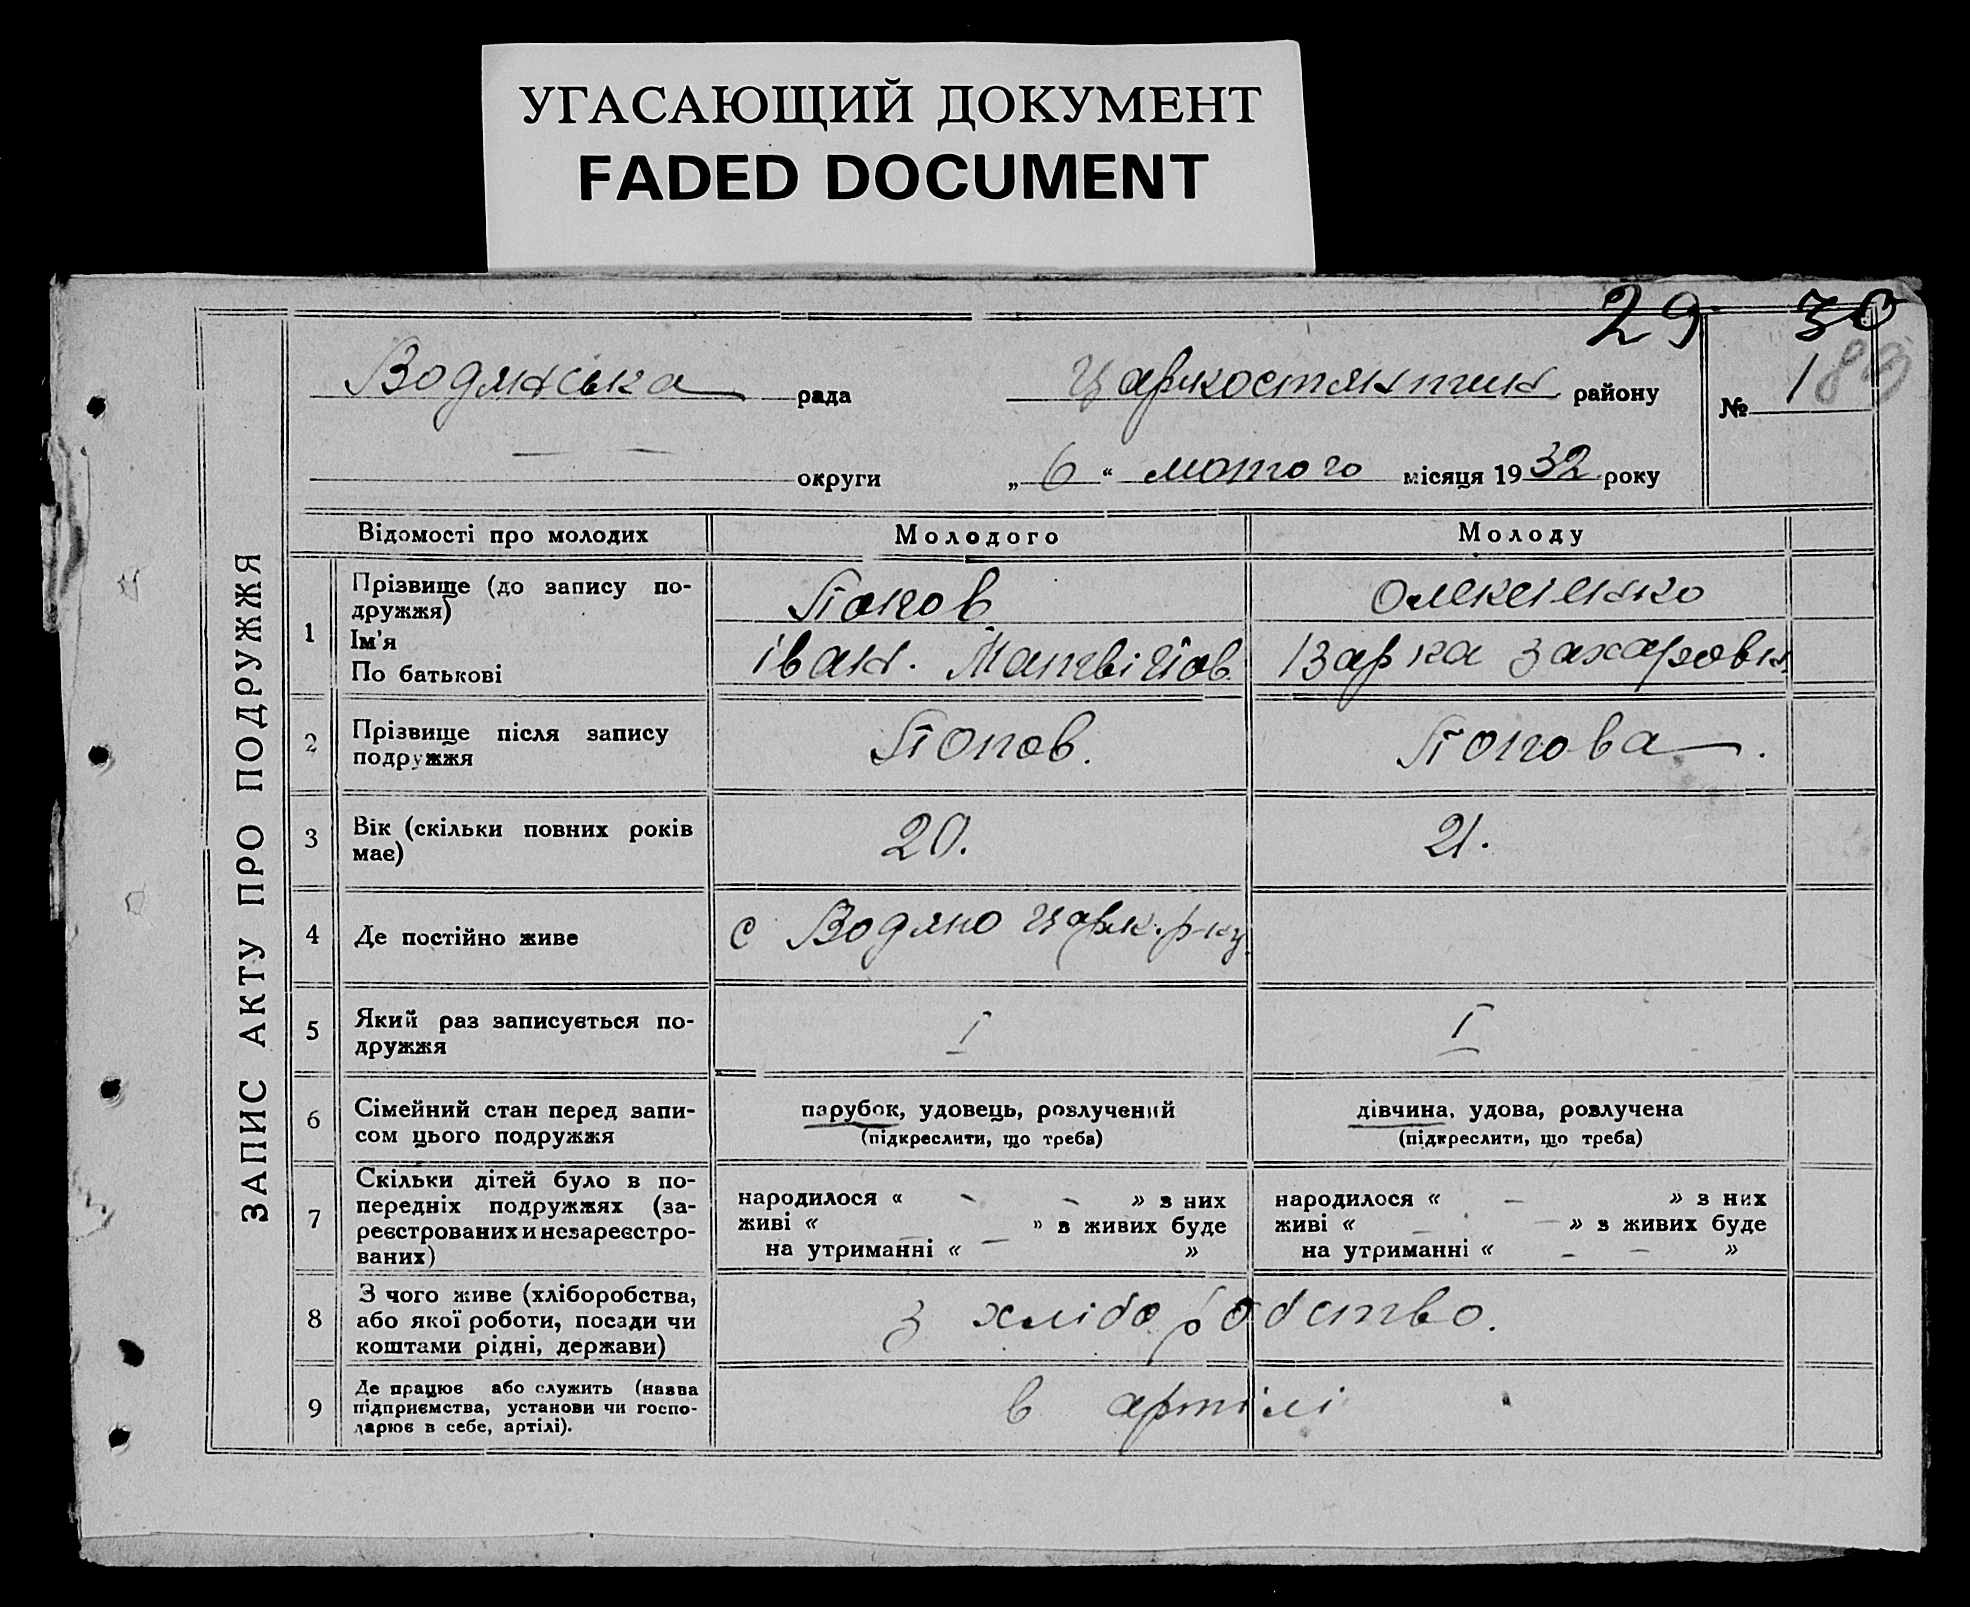 УГАСАЮЩИЙ ДОКУМЕНТ
FADED DOCUMENT
29 30
Водянська рада Царкостянтин району № 1
округи „ 6 “ лютого місяця 1932 року
ЗАПИС АКТУ ПРО ПОДРУЖЖЯ
Відомості про молодих Молодого Молоду
1 Прізвище (до запису по-
дружжя)
Ім'я
По батькові
Попов
Іван. Матвійов
Олексенко
Варка Захаровн
2 Прізвище після запису
подружжя
Попов.
Попова.
3 Вік (скільки повних років
має)
20.
21.
4 Де постійно живе
с Водяно Царк. р-ну
5 Який раз записується по-
дружжя
I
I
6 Сімейний стан перед запи-
сом цього подружжя
парубок, удовець, розлучений
(підкреслити, що треба)
дівчина, удова, розлучена
(підкреслити, що треба)
7 Скільки дітей було в по-
передніх подружжях (за-
реєстрованих и незареєстро-
ваних)
народилося « - - » з них
живі « — » з живих буде
на утриманні « — »
народилося « — » з них
живі « — — » з живих буде
на утриманні « — — »
8 З чого живе (хліборобства,
або якої роботи, посади чи
коштами рідні, держави)
з хліборобство.
9 Де працює або служить (назва
підприємства, установи чи госпо-
дарює в себе, артілі).
в артілі